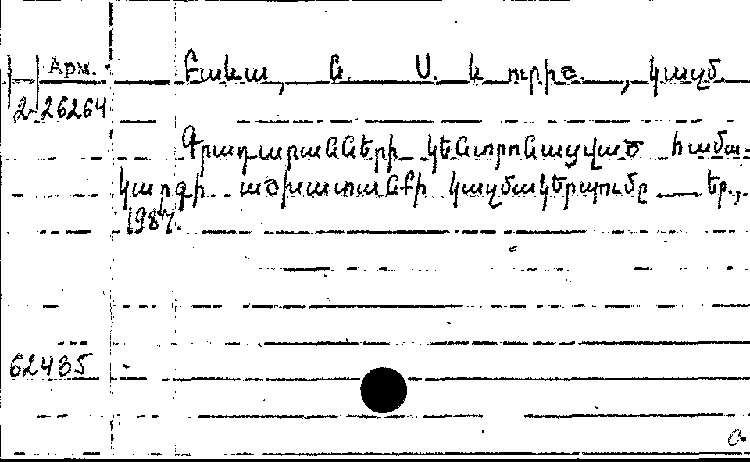 Арм.
2-26264
Բակա, Ն. Ս. և ուրիշ., կազմ.
Գրադարանների կենտրոնացված համա-
կարգի աշխատանքի կազմակերպումը ___ Եր.,
1987.
62435